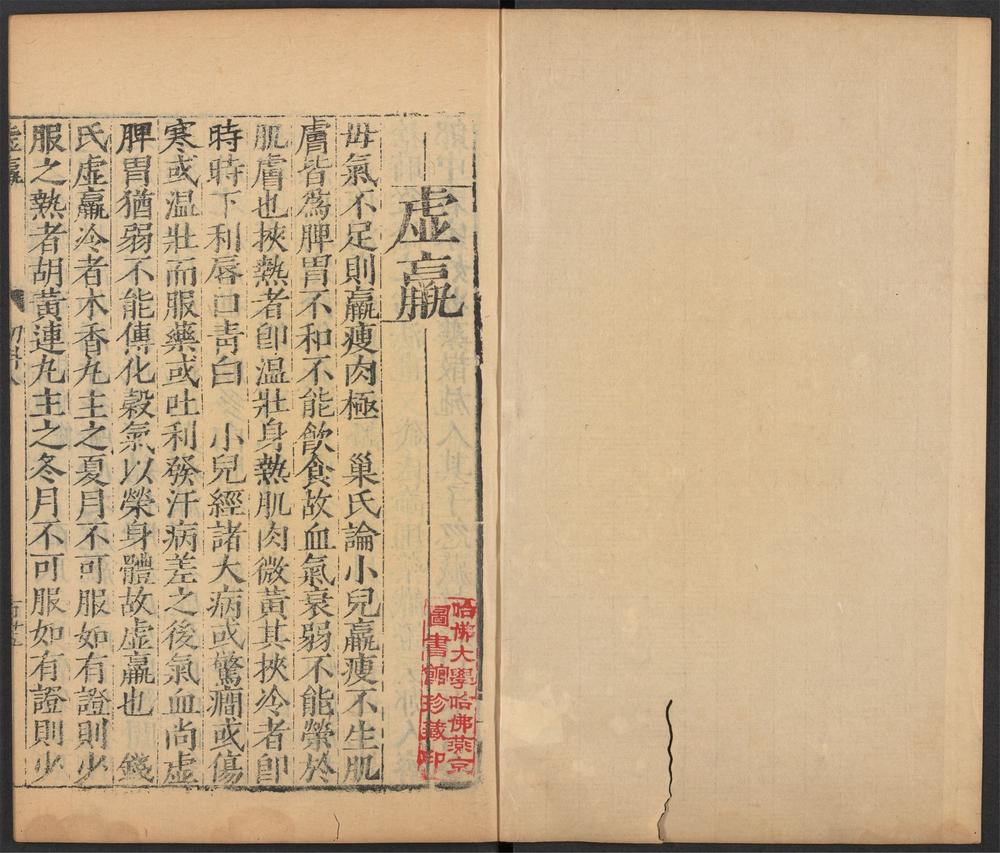 虛羸
毋氣不足則羸瘦肉極　巢氏論小兒羸瘦不生肌
膚皆爲脾胃不和不能飲食故血氣衰弱不能榮於
肌膚也挾熱者卽温壯身熱肌肉微黃其挾冷者卽
時時下利唇口青白　小兒經諸大病或驚癎或傷
寒或温壯而服藥或吐利發汗病差之後氣血尚虛
脾胃猶弱不能傳化穀氣以榮身體故虛羸也　錢
氏虛羸冷者木香丸主之夏月不可服如有證則少
服之熱者胡黃連丸主之冬月不可服如有證則少
虛羸
哈佛大學哈佛燕京
圖書館珍藏印